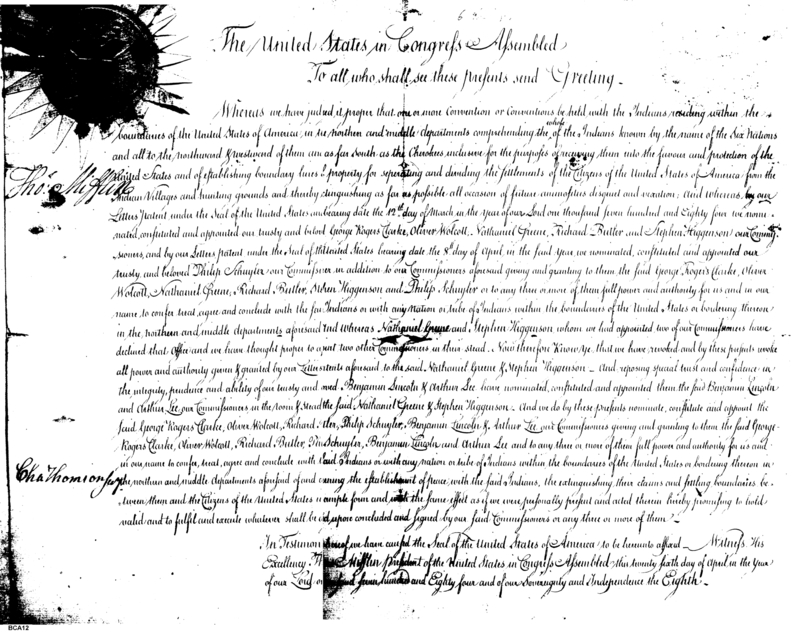 6
The United States in Congress Assembled
To all who shall see these presents send Greeting.
Whereas we have judged it proper that one or more Convention or Conventions be held with the Indians residing within the
boundaries of the United States of America, in the northern and middle departments comprehending the whole of the Indians known by the name of the Six Nations
and all to the northward & westward of them and as far South as the Cherokees inclusive for the purposes of receiving them into the favour and protection of the
United States and of establishing boundary lines of property for separating and dividing the settlements of the Citizens of the United States of America from the
Tho.s Mifflin
Indian Villages and hunting grounds and thereby extinguishing as far as possible all occasion of future animosities disquiet and vexation; And whereas by our
Letters Patent under the Seal of the United States bearing date the 12th day of March in the Year of our Lord one thousand seven hundred and Eighty four we nomi-
nated, constituted and appointed our trusty and beloved George Rogers Clarke, Oliver Wolcott, Nathaniel Greene, Richard Butler and Stephen Higgenson our Commis-
sioners, and by our Letters patent under the Seal of the United States bearing date the 8th day of April in the said Year we nominated, constituted and appointed our
trusty and beloved Philip Schuyler our Commissioner in addition to our Commissioners aforesaid giving and granting to them the said George Rogers Clarke, Oliver
Wolcott, Nathaniel Greene, Richard Butler, Stephen Higgenson and Philip Schuyler or to any three or more of them full power and authority for us and in our
name to confer treat, agree and conclude with the said Indians or with any Nation or tribe of Indians within the boundaries of the United States or bordering thereon
in the northern and middle departments aforesaid And Whereas Nathaniel Greene and Stephen Higgenson whom we had appointed two of our Commissioners have
declined that Office and we have thought proper to appoint two other Commissioners in their stead. Now therefore Know Ye, that we have revoked and by these presents revoke
all power and authority given & granted by our Letters patents aforesaid to the said Nathaniel Greene & Stephen Higgenson. And reposing special trust and confidence in
the integrity, prudence and ability of our trusty and beloved Benjamin Lincoln & Arthur Lee have nominated, constituted and appointed them the said Benjamin Lincoln
and Arthur Lee our Commissioners in the room & Stead of the said Nathaniel Greene & Stephen Higgenson. And we do by these presents nominate, constitute and appoint the
said George Rogers Clarke, Oliver Wolcott, Richard Butler, Philip Schuyler, Benjamin Lincoln & Arthur Lee our Commissioners giving and granting to them the said George
Rogers Clarke, Oliver Wolcott, Richard Butler, Philip Schuyler, Benjamin Lincoln and Arthur Lee and to any three or more of them full power and authority for us and
in our name to confer, treat, agree and conclude with the said Indians or with any nation or tribe of Indians within the boundaries of the United States or bordering thereon in
Cha.s Thomson Secy
the northern and middle departments aforesaid of and concerning the establishment of peace with the said Indians, the extinguishing their claims and settling boundaries be-
tween them and the Citizens of the United States in ample form and with the same effect as if we were personally present and acted therein hereby promising to hold
valid and to fulfil and execute whatever shall be agreed upon concluded and signed by our said Commissioners or any three or more of them.
In Testimony whereof we have caused the Seal of the United States of America to be hereunto affixed. Witness His
Excellency Thomas Mifflin president of the United States in Congress Assembled this twenty sixth day of April in the Year
of our Lord one thousand seven hundred and Eighty four and of our Sovereignty and Independence the Eighth.
BCA12